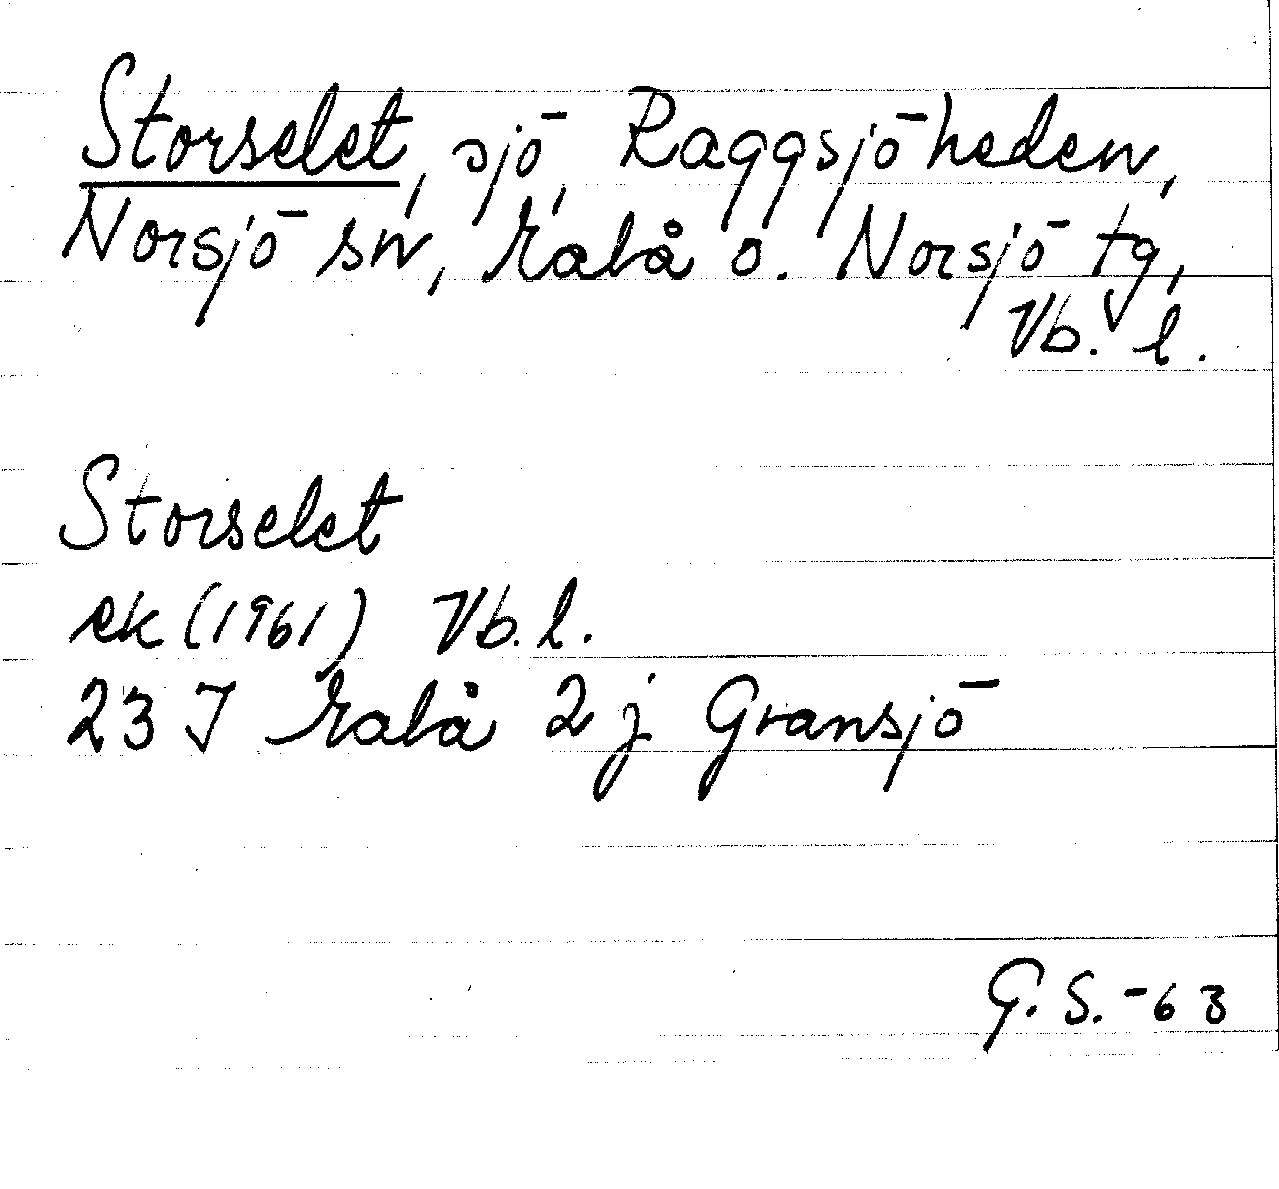 Storselet, sjö, Raggsjöheden,
Norsjö sn, Malå o. Norsjö tg,
Vb. l.
Storselet
ek (1961) Vb. l.
23 I Malå 2 j Gransjö
G. S. -63